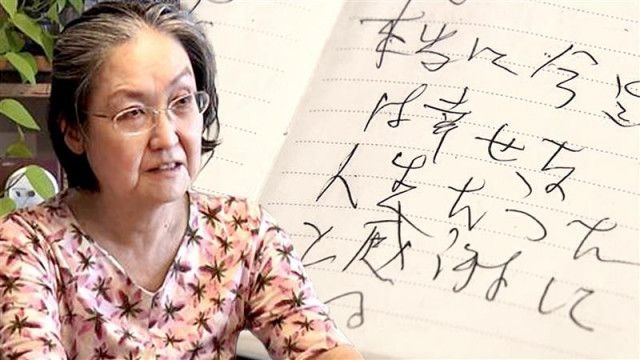 本当に今
は幸せな
人生だった
と感謝に